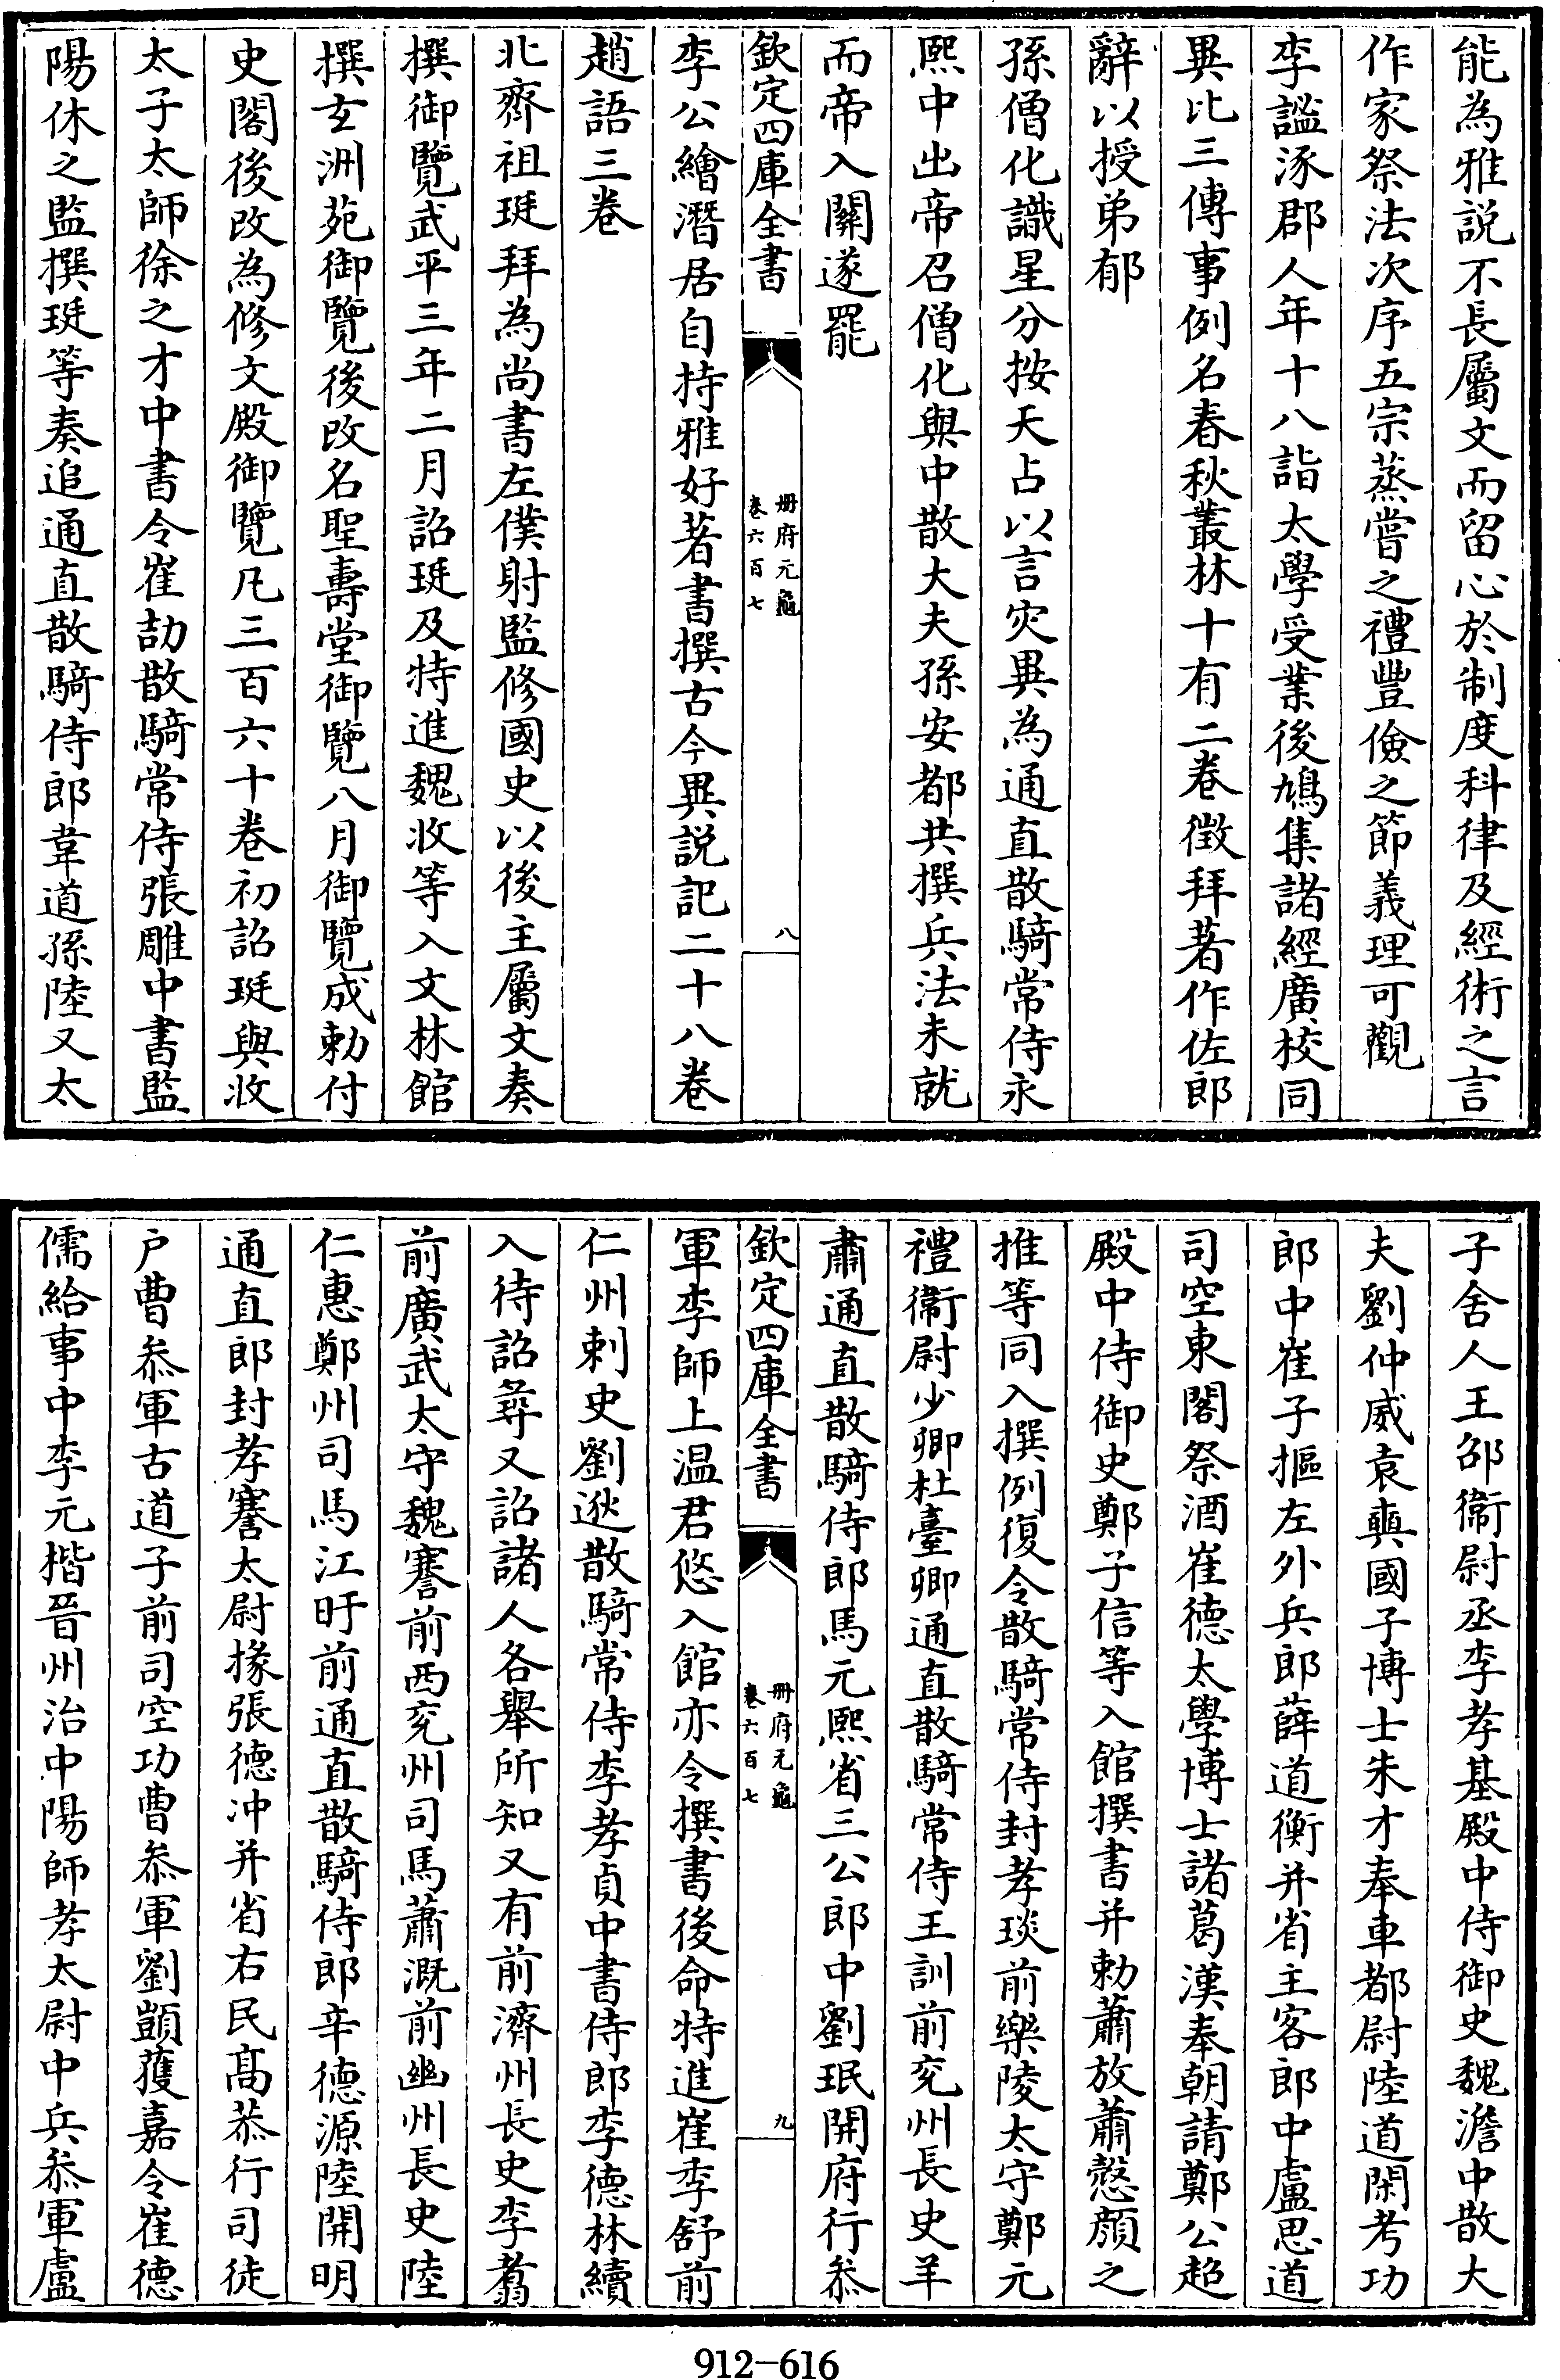 能為雅説不長屬文而留心於制度科律及經術之言
作家祭法次序五宗蒸嘗之禮豐儉之節義理可觀
李謐涿郡人年十八詣太學受業後鳩集諸經廣校同
異比三傳事例名春秋叢林十有二卷徴拜著作佐郎
辭以授弟郁
孫僧化識星分按天占以言灾異為通直散騎常侍永
熙中出帝召僧化與中散大夫孫安都共撰兵法未就
而帝入關遂罷
欽定四庫全書
冊府元龜
卷六百七
八
李公繪潛居自持雅好著書撰古今異説記二十八卷
趙語三卷
北齊祖珽拜為尚書左僕射監修國史以後主屬文奏
撰御覽武平三年二月詔珽及特進魏收等入文林館
撰玄洲苑御覽後改名聖壽堂御覽八月御覽成勅付
史閣後改為修文殿御覽凡三百六十卷初詔珽與收
太子太師徐之才中書令崔劼散騎常侍張雕中書監
陽休之監撰珽等奏追通直散騎侍郎韋道孫陸乂太
子舍人王邵衛尉丞李孝基殿中侍御史魏澹中散大
夫劉仲威袁奭國子博士朱才奉車都尉陸道閑考功
郎中崔子摳左外兵郎薛道衡并省主客郎中盧思道
司空東閣祭酒崔德太學博士諸葛漢奉朝請鄭公超
殿中侍御史鄭子信等入館撰書并勅蕭放蕭慤顔之
推等同入撰例復令散騎常侍封孝琰前樂陵太守鄭元
禮衛尉少卿杜臺卿通直散騎常侍王訓前兖州長史羊
肅通直散騎侍郎馬元熙省三公郎中劉珉開府行叅
欽定四庫全書
冊府元龜
卷六百七
九
軍李師上温君悠入館亦令撰書後命特進崔季舒前
仁州刺史劉逖散騎常侍李孝貞中書侍郎李德林續
入待詔尋又詔諸人各舉所知又有前濟州長史李翥
前廣武太守魏騫前西兖州司馬蕭溉前幽州長史陸
仁惠鄭州司馬江旴前通直散騎侍郎辛德源陸開明
通直郎封孝騫太尉掾張德冲并省右民髙㳟行司徒
户曹叅軍古道子前司空功曹叅軍劉顗蒦嘉令崔德
儒給事中李元楷晉州治中陽師孝太尉中兵叅軍盧
912-616